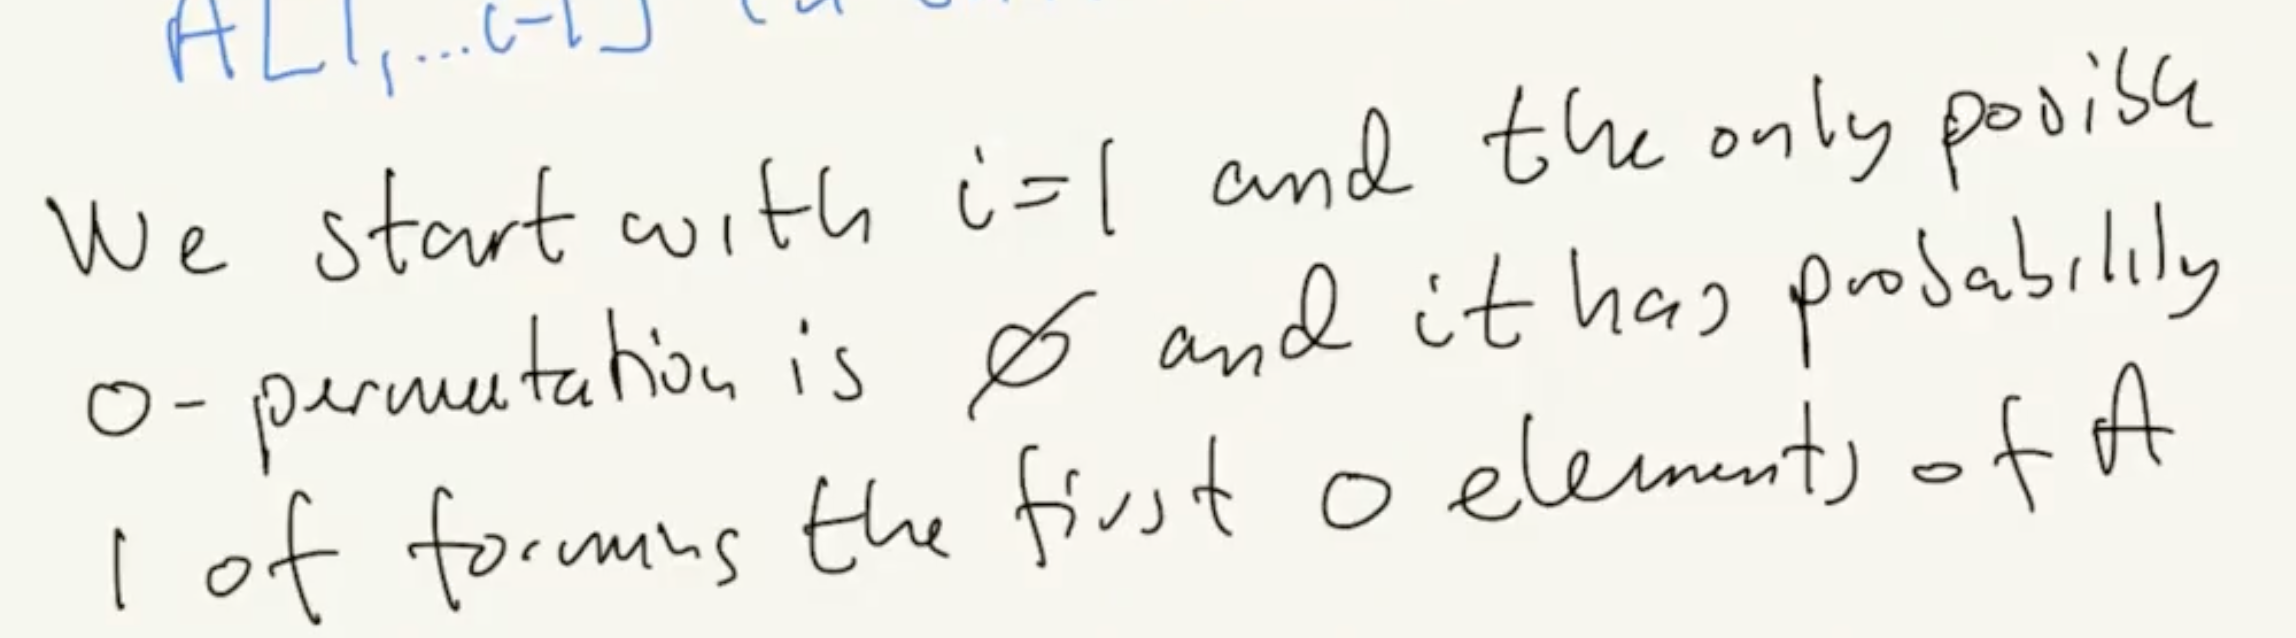 A[1,...i-1]
We start with i=1 and the only possible
0-permutation is ∅ and it has probability
1 of forming the first 0 elements of A